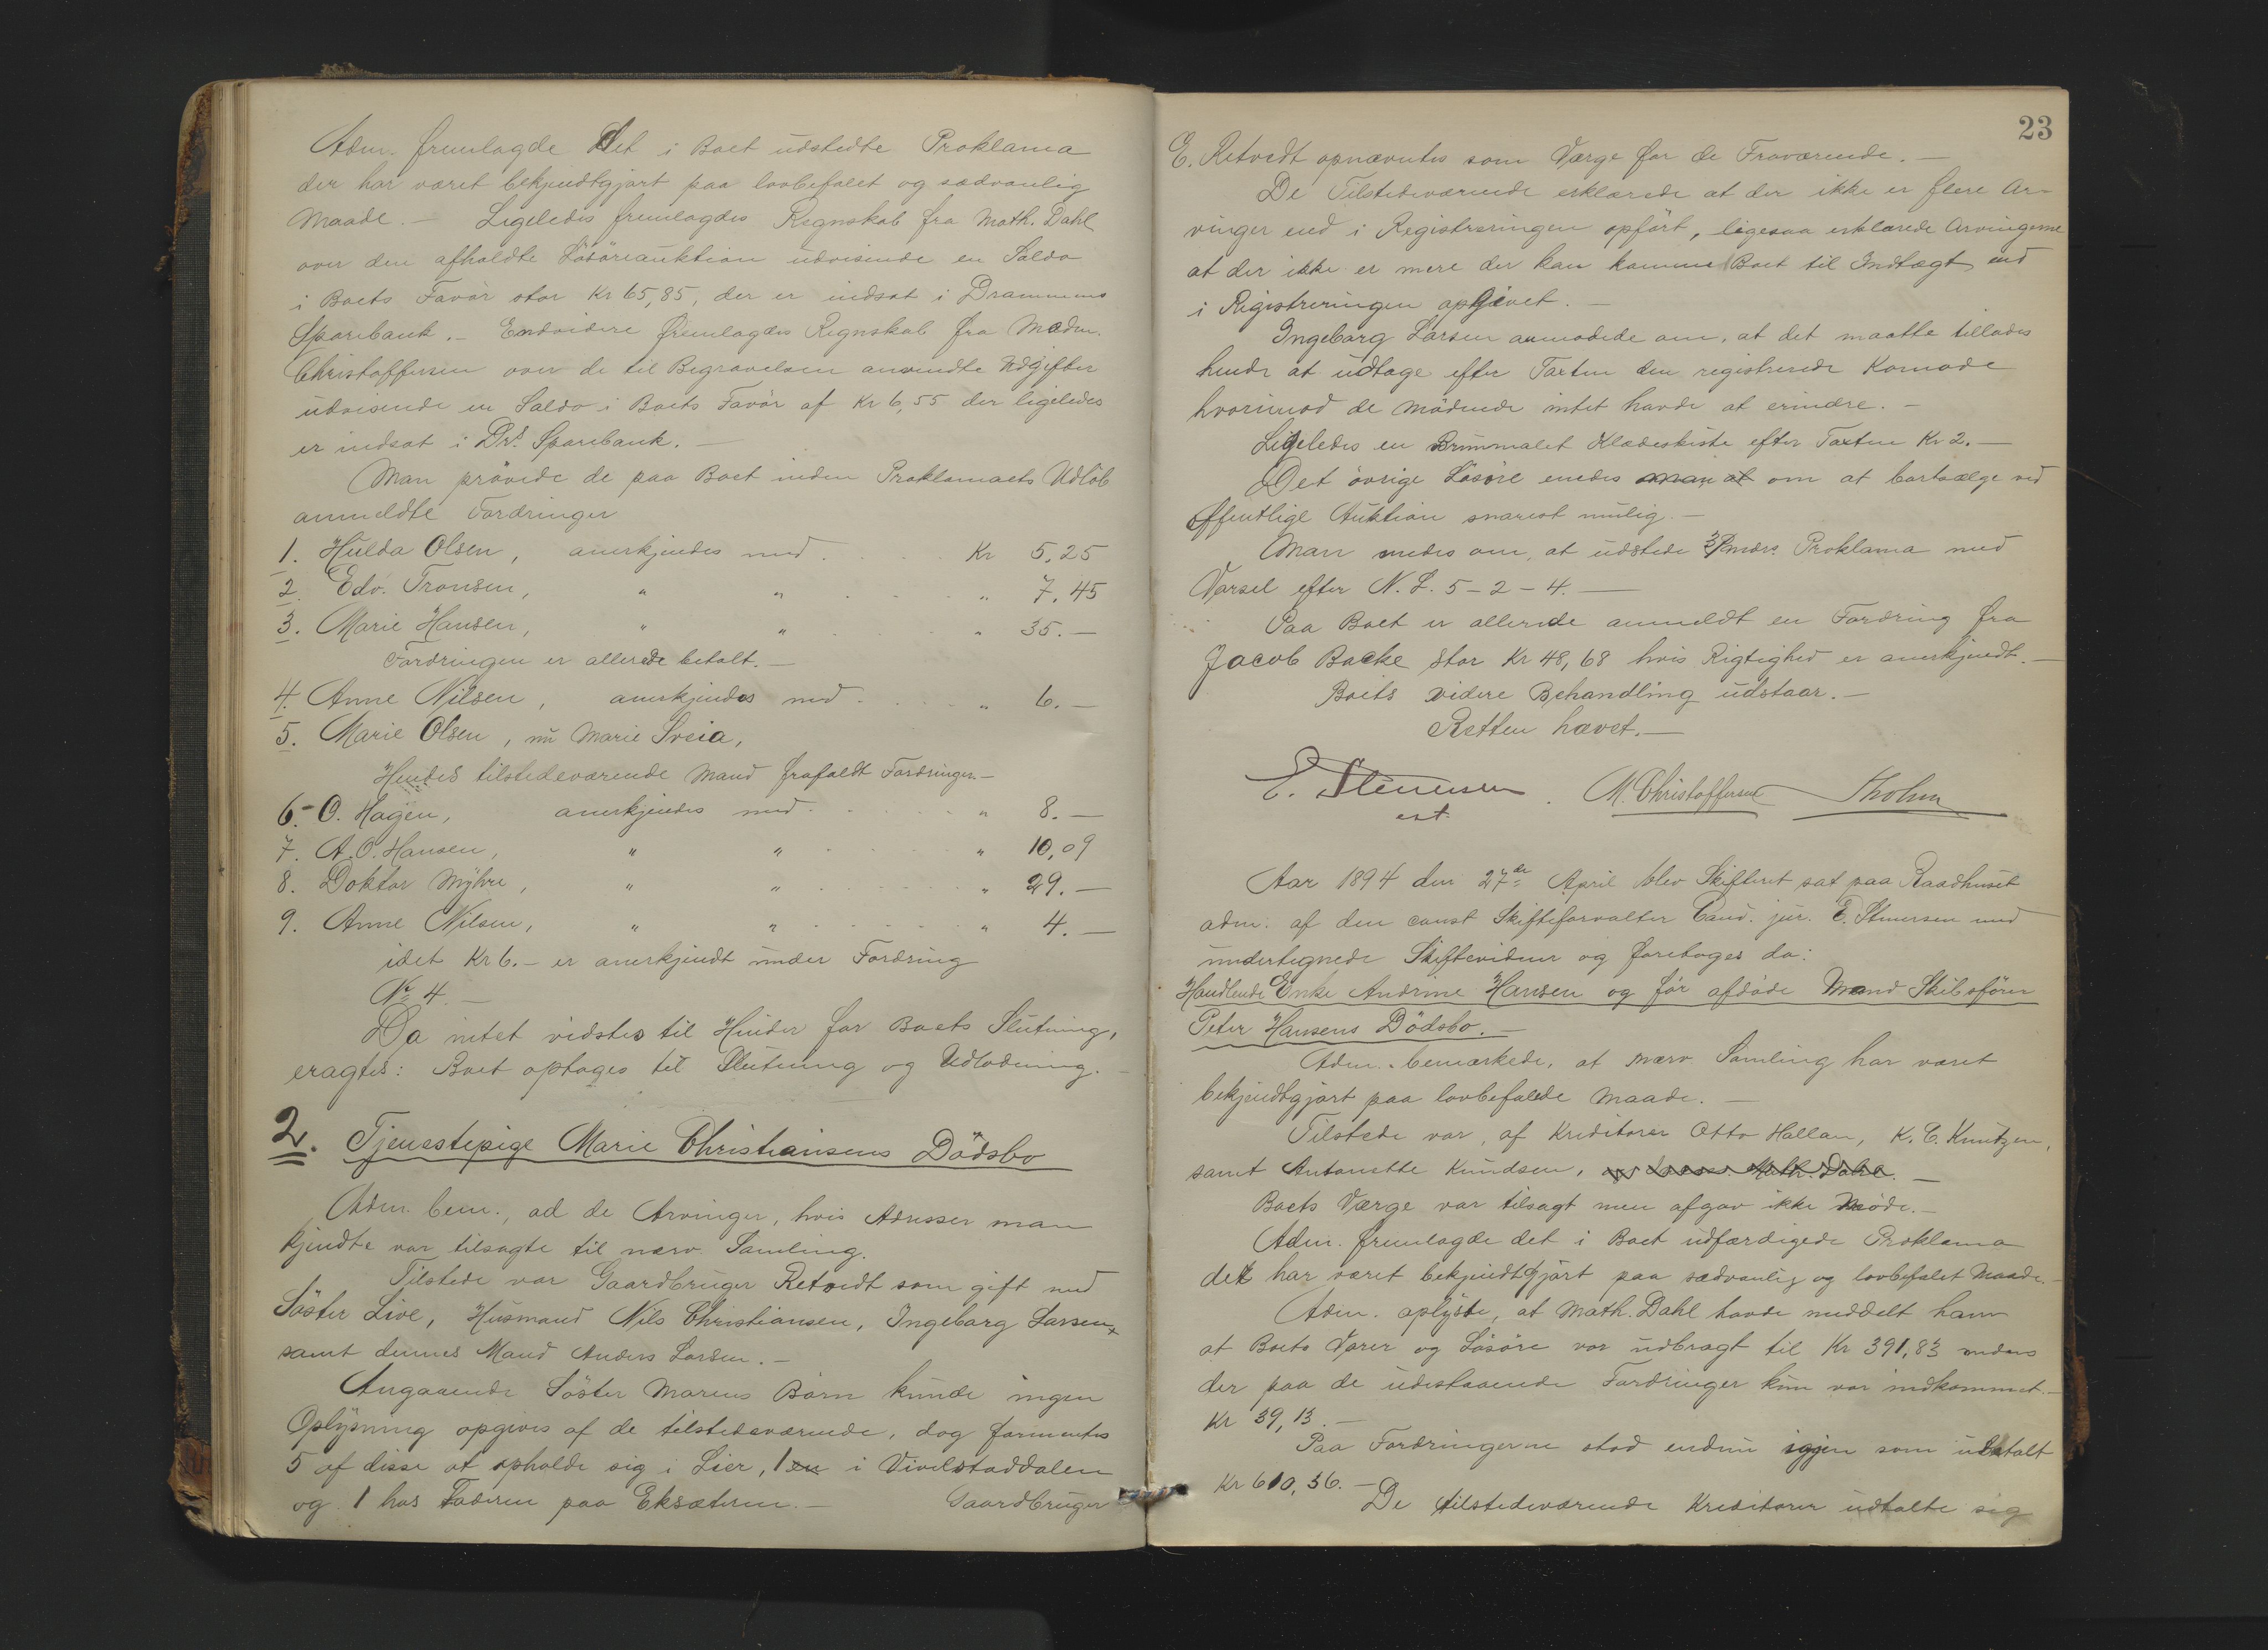 Adm. fremlagde det i Boet udstedte Proklama
der har været bekjendtgjort paa lovbefalet og sædvanlig
Maade. — Ligeledes fremlagdes Regnskab fra Math. Dahl
over den afholdte Løsøreauktion udvisende en Saldo
i Boets Favør stor Kr 65,85, der er indsat i Drammens
Sparebank. — Endvidere fremlagdes Regnskab fra Madm.
Christoffersen over de til Begravelsen anvendte Udgifter
udvisende en Saldo i Boets Favør af Kr 6,55 der ligeledes
er indsat i Drs. Sparebank. —
Man prøvede de paa Boet inden Proklamaets Udløb
anmeldte Fordringer
1. Hulda Olsen, anerkjendes med . . . Kr 5.25
2. Edv. Fronsen, " " . . . " 7.45
3. Marie Hansen, " " . . . " 35.—
Fordringen er allerede betalt. —
4. Anne Nilsen, anerkjendes med . . . " 6.—
5. Marie Olsen, nu Marie Sveia,
Hendes tilstedeværende Mand frafaldt Fordringen —
6. O. Hagen, anerkjendes med . . . " 8.—
7. A. O. Hansen, " " . . . " 10,09
8. Doktor Myhre, " " . . . " 29.—
9. Anne Nilsen, " " . . . " 4.—
idet Kr 6.— er anerkjendt under Fordring
No 4. —
Da intet vidstes til Hinder for Boets Slutning,
eragtes: Boet optages til Slutning og Udlodning. —
2. Tjenestepige Marie Christiansens Dödsbo
Adm. bem., ad de Arvinger, hvis Adresser man
kjendte var tilsagte til nærv. Samling.
Tilstede var Gaardbruger Retvedt som gift med
Söster Live, Husmand Nils Christiansen, Ingeborg Larsen
samt dennes Mand Anders Larsen. —
Angaaende Söster Marens Börn kunde ingen
Oplysning opgives af de tilstedeværende, dog formentes
5 af disse at opholde sig i Lier, 1 en i Vivelstaddalen
og 1 hos Faderen paa Eksæteren. — Gaardbruger
23
E. Retvedt opnævntes som Værge for de Fraværende. —
De Tilstedeværende erklærede at der ikke er flere Ar-
vinger end i Registreringen opfört, ligesaa erklærede Arvingerne
at der ikke er mere der kan komme Boet til Indtægt end
i Registreringen opgivet. —
Ingeborg Larsen anmodede om, at det maatte tillades
hende at udtage efter Taxten den registrerede Komode
hvorimod de Mödende intet havde at erindre. —
Ligeledes en Brunmalet Klædeskiste efter Taxten Kr 2. —
Det övrige Lösöre enedes man at om at bortsælge ved
offentlige Auktion snarest mulig. —
Man enedes om, at udstede 3 mdrs Proklama med
Varsel efter N. L. 5-2-4. —
Paa Boet er allerede anmeldt en Fordring fra
Jacob Backe stor Kr 48,68 hvis Rigtighed er anerkjendt. —
Boets videre Behandling udstaar. —
Retten hævet. —
E. Stenersen
cst.
M. Christoffersen
Aar 1894 den 27de April blev Skifteret sat paa Raadhuset
adm. af den const Skifteforvalter Cand. jur. E. Stenersen med
undertegnede Skiftevidner og foretoges da:
Handlende Enke Andrine Hansen og för afdöde Mand Skibsförer
Peter Hansens Dödsbo. —
Adm. bemærkede, at nærv Samling har været
bekjendtgjort paa lovbefalede Maade. —
Tilstede var, af Kreditorer Otto Hallan, K. C. Knutzen,
samt Antonette Knudsen, Math. Dahl. —
Boets Værge var tilsagt men afgav ikke Möde. —
Adm. fremlagde det i Boet udfærdigede Proklama
det har været bekjendtgjort paa sædvanlig og lovbefalet Maade. —
Adm. oplyste, at Math. Dahl havde meddelt ham
at Boets Varer og Lösöre var udbragt til Kr 391,83 medens
der paa de udestaaende Fordringer kun var indkommet —
Kr 39,13. —
Paa Fordringerne stod endnu igjen som ubetalt
Kr 610,36. —
De tilstedeværende Kreditorer udtalte sig